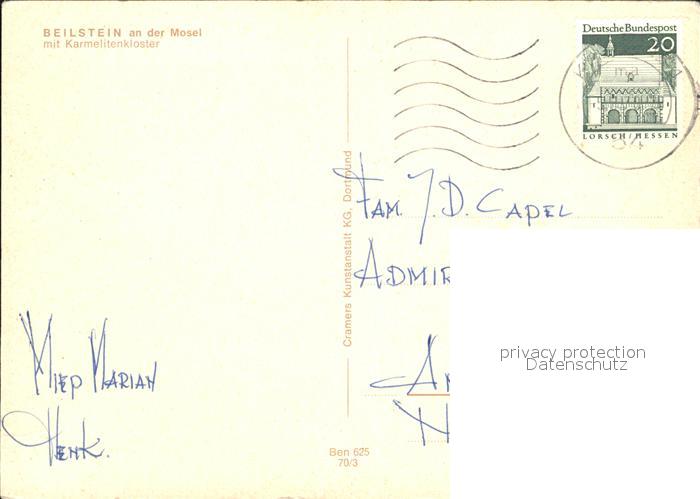 BEILSTEIN an der Mosel
mit Karmelitenkloster
Deutsche Bundespost
20
LORSCH/HESSEN
54
Cramers Kunstanstalt KG, Dortmund
FAM. J.D. CAPEL
ADMIR
privacy protection
Datenschutz
MIEP MARIAN
HENK.
Ben 625
70/3